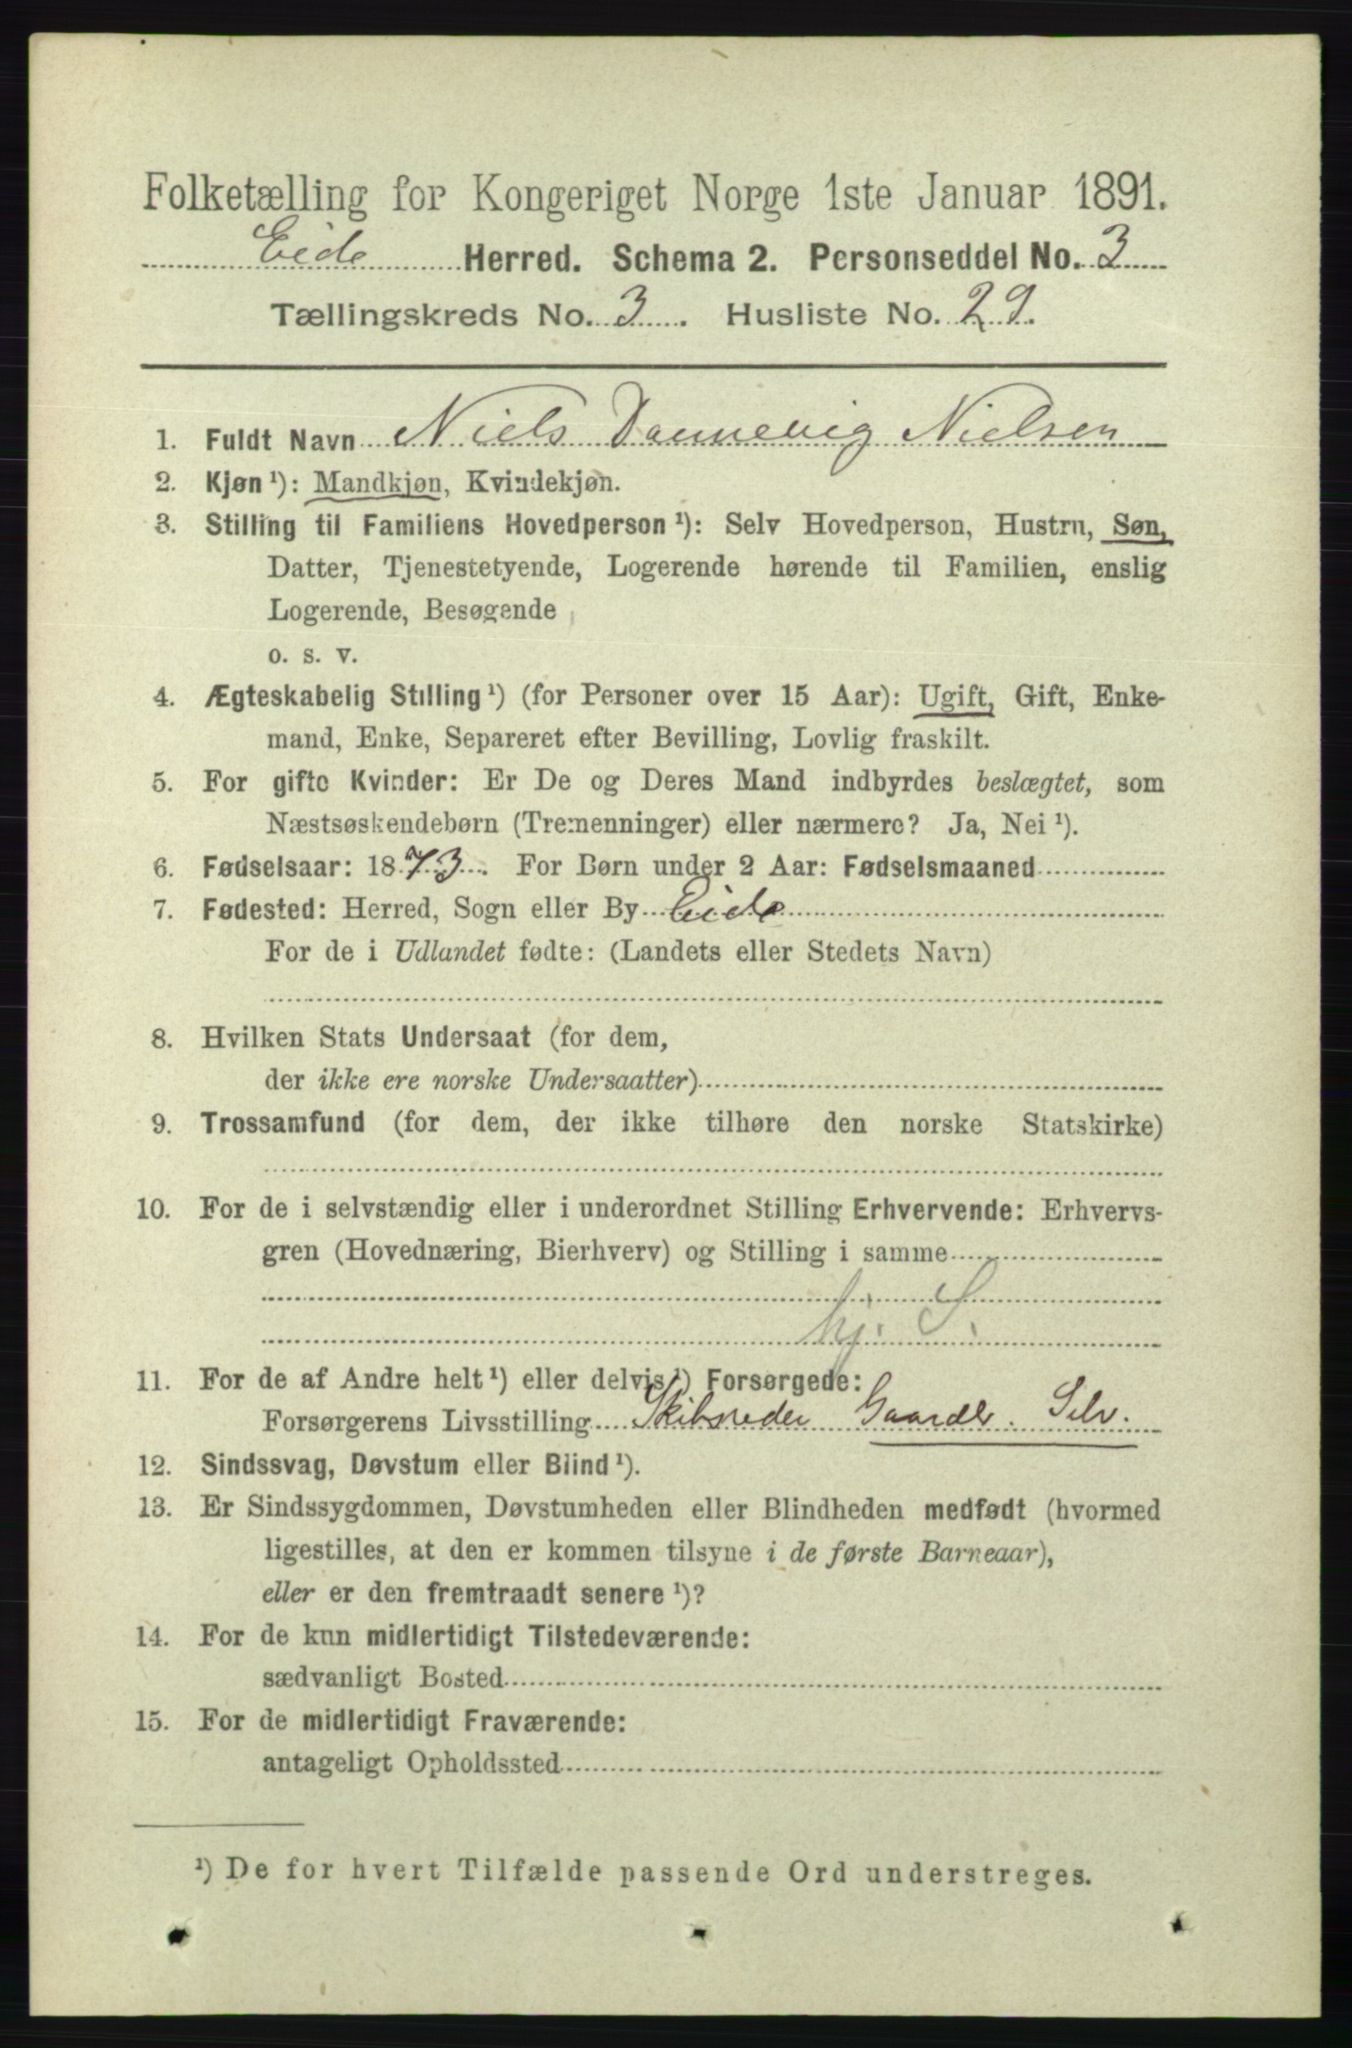 Folketælling for Kongeriget Norge 1ste Januar 1891.
Eide Herred. Schema 2. Personseddel No. 3
Tællingskreds No. 3. Husliste No. 29.
1. Fuldt Navn Niels Dannevig Nielsen
2. Kjøn ¹): Mandkjøn, Kvindekjøn.
3. Stilling til Familiens Hovedperson ¹): Selv Hovedperson, Hustru, Søn,
Datter, Tjenestetyende, Logerende hørende til Familien, enslig
Logerende, Besøgende
o. s. v.
4. Ægteskabelig Stilling ¹) (for Personer over 15 Aar): Ugift, Gift, Enke-
mand, Enke, Separeret efter Bevilling, Lovlig fraskilt.
5. For gifte Kvinder: Er De og Deres Mand indbyrdes beslægtet, som
Næstsøskendebørn (Tremenninger) eller nærmere? Ja, Nei ¹).
6. Fødselsaar: 1873. For Børn under 2 Aar: Fødselsmaaned
7. Fødested: Herred, Sogn eller By Eide
For de i Udlandet fødte: (Landets eller Stedets Navn)
8. Hvilken Stats Undersaat (for dem,
der ikke ere norske Undersaatter)
9. Trossamfund (for dem, der ikke tilhøre den norske Statskirke)
10. For de i selvstændig eller i underordnet Stilling Erhvervende: Erhvervs-
gren (Hovednæring, Bierhverv) og Stilling i samme
hj. S.
11. For de af Andre helt ¹) eller delvis ¹) Forsørgede:
Forsørgerens Livsstilling Skibsreder Gaardb. Selv.
12. Sindssvag, Døvstum eller Blind ¹).
13. Er Sindssygdommen, Døvstumheden eller Blindheden medfødt (hvormed
ligestilles, at den er kommen tilsyne i de første Barneaar),
eller er den fremtraadt senere ¹)?
14. For de kun midlertidigt Tilstedeværende:
sædvanligt Bosted
15. For de midlertidigt Fraværende:
antageligt Opholdssted
¹) De for hvert Tilfælde passende Ord understreges.